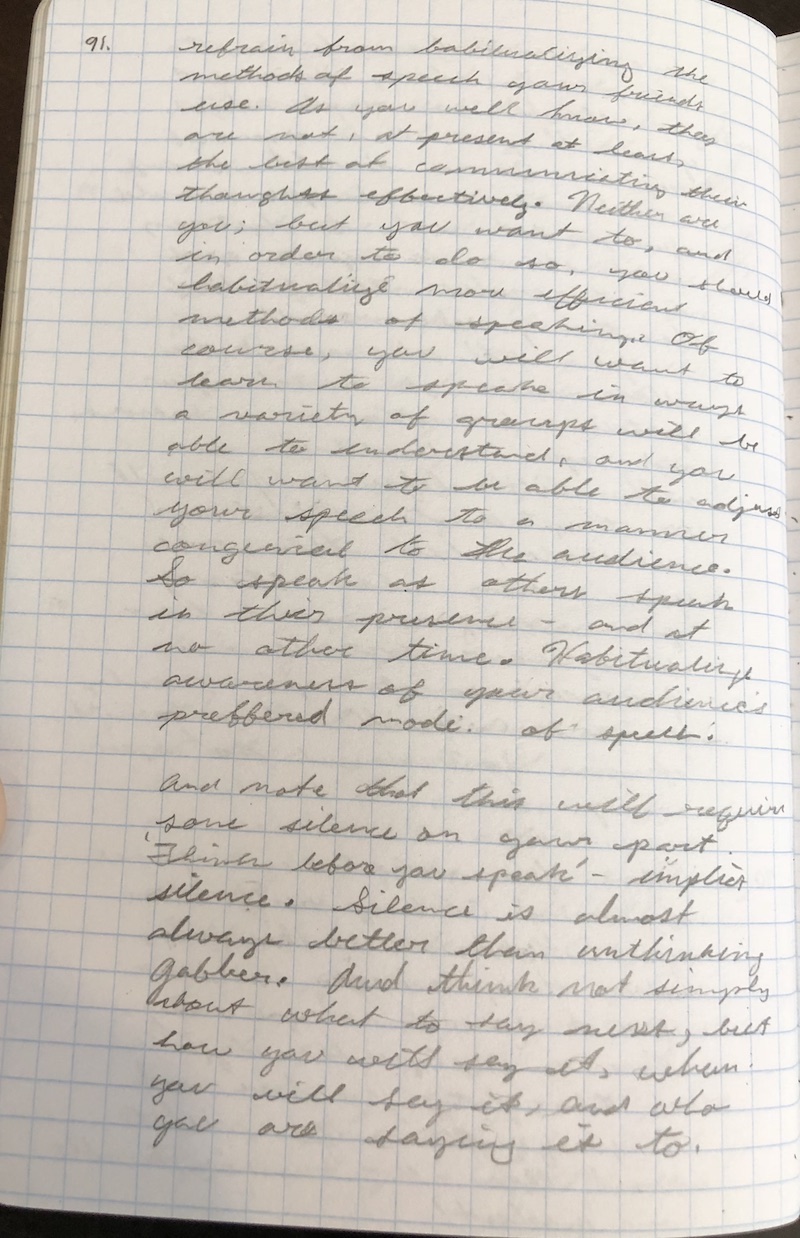 91. refrain from habitualizing the
methods of speech your friends
use. As you well know, they
are not, at present at least,
the best at communicating their
thoughts effectively. Neither are
you; but you want to, and
in order to do so, you should
habitualize more efficient
methods of speaking. Of
course, you will want to
learn to speake in ways
a variety of groups will be
able to understand, and you
will want to be able to adjust
your speech to a manner
congenial to the audience.
So speak as others speak
in their presence - and at
no other time. Habitualize
awareness of your audience's
preffered mode. of
And note that this will require
some silence on your part.
'Think before you speak' - implies
silence. Silence is almost
always better than unthinking
gabber. And think not simply
about what to say next, but
how you will say it, when
you will say it, and who
you are saying it to.